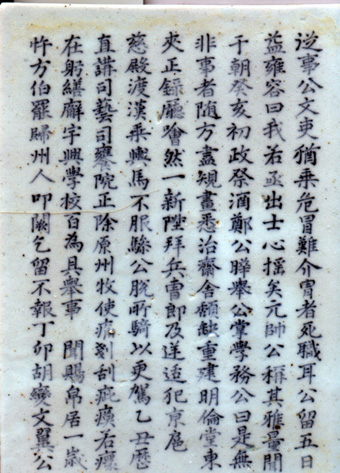 逆事公文吏猶乘危冒難介冑者死職耳公留五日
益雍容曰我若亟出士心搖矣元帥公稱其雅量聞
于朝癸亥初政祭酒鄭公曄舉公掌學務公曰是無
非事者隨方盡規畫悉治齋舍頹缺重建明倫堂東
夾正錄廳噲然一新陞拜兵曹郎及逆适犯京扈
慈殿渡漢乘輿馬不服驂公脫所騎以更駕乙丑歷
直講司藝司饔院正除原州牧使病剗刮疵癘右癉
在躬繕廨宇興學校百爲具舉事 聞賜帛居一歲
忤方伯罷歸州人叩闕乞留不報丁卯胡變文翼公